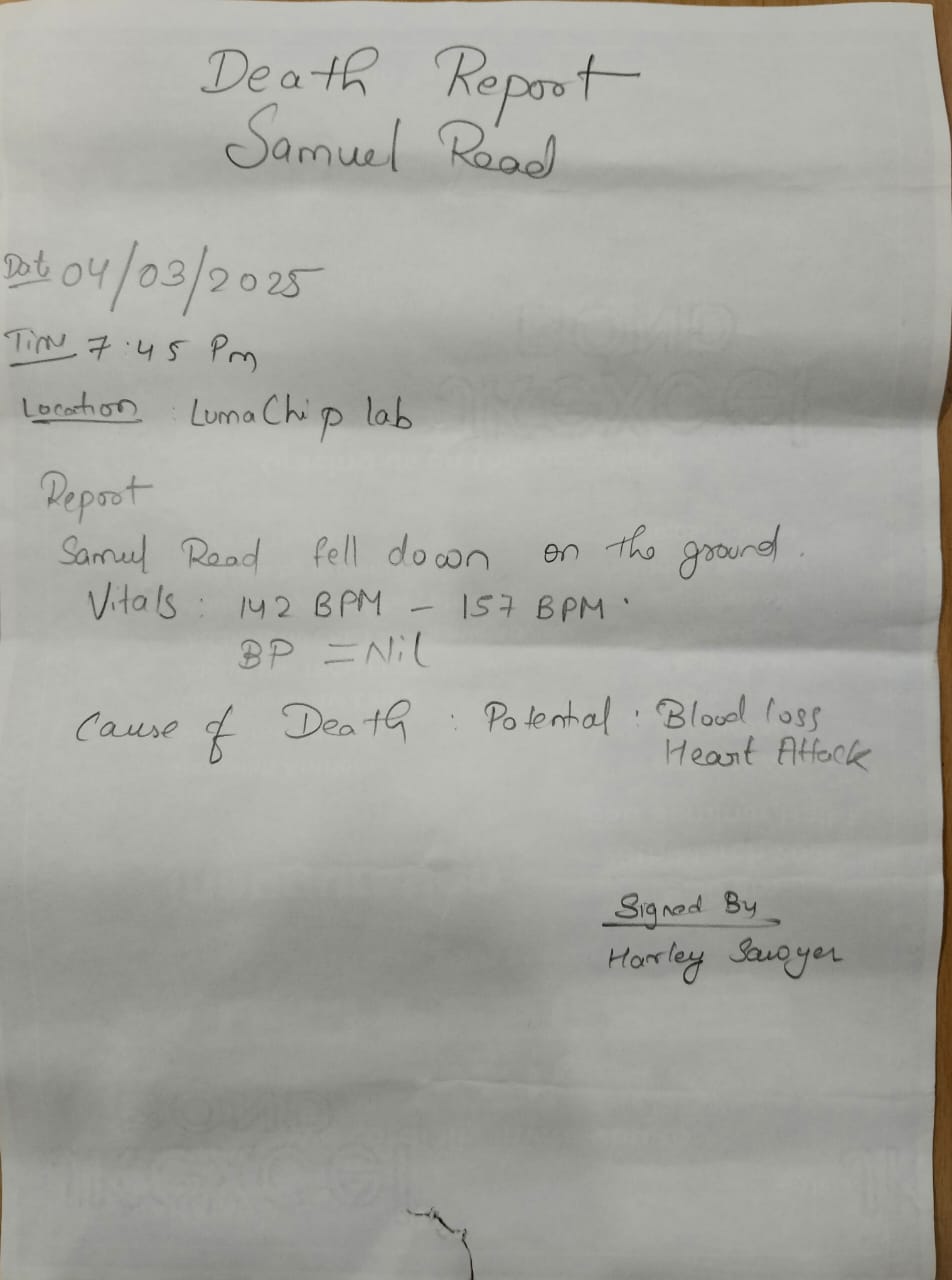 Death Report
Samuel Read
Date 04/03/2025
Time 7:45 Pm
Location : LumaChip lab
Report
Samuel Read fell down on the ground.
Vitals : 142 BPM - 157 BPM.
BP = Nil
Cause of Death : Potential : Blood loss
Heart Attack
Signed By
Harley Sawyer